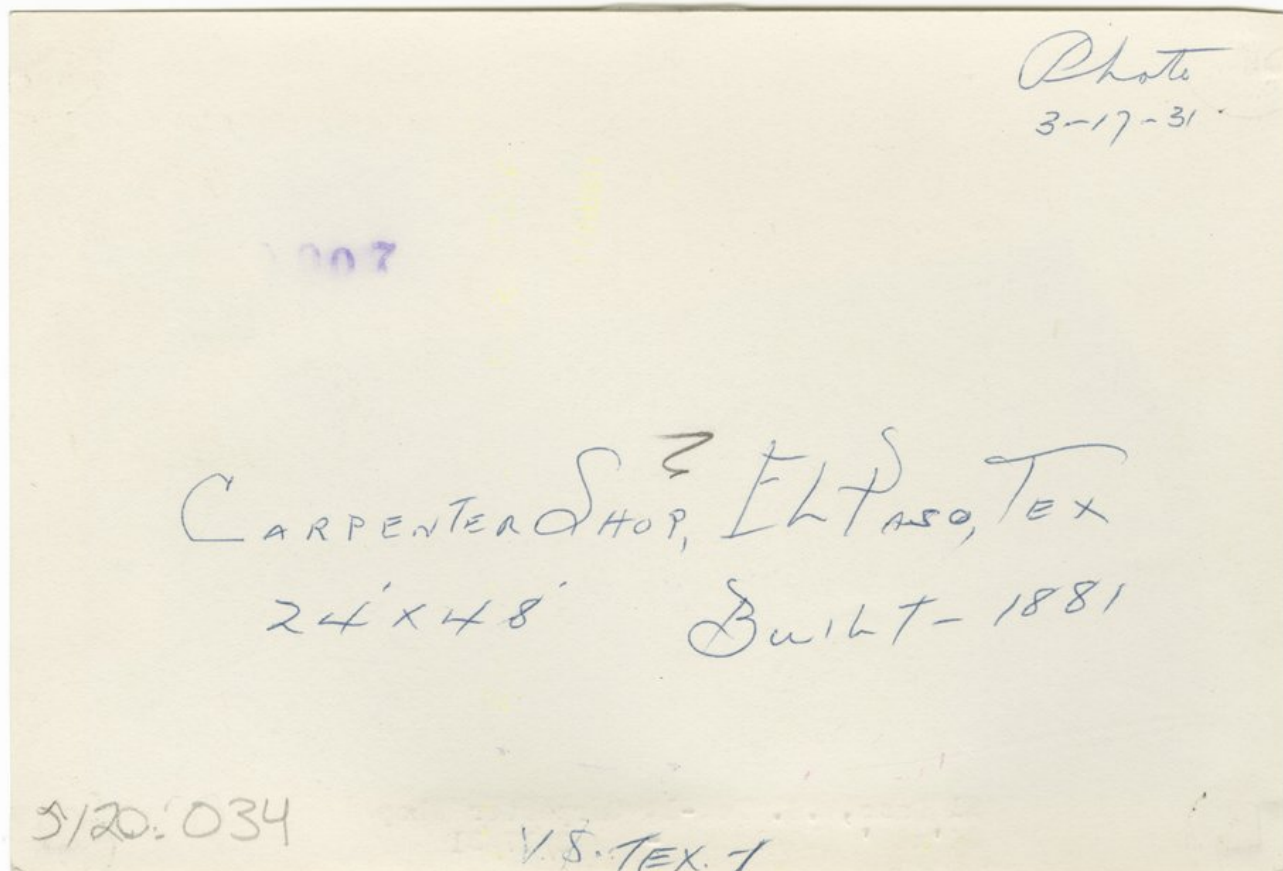 Photo
3-17-31
007
CARPENTER SHOP, EL PASO, TEX
24' X 48' BUILT - 1881
5/20:034
V.S. TEX. -1